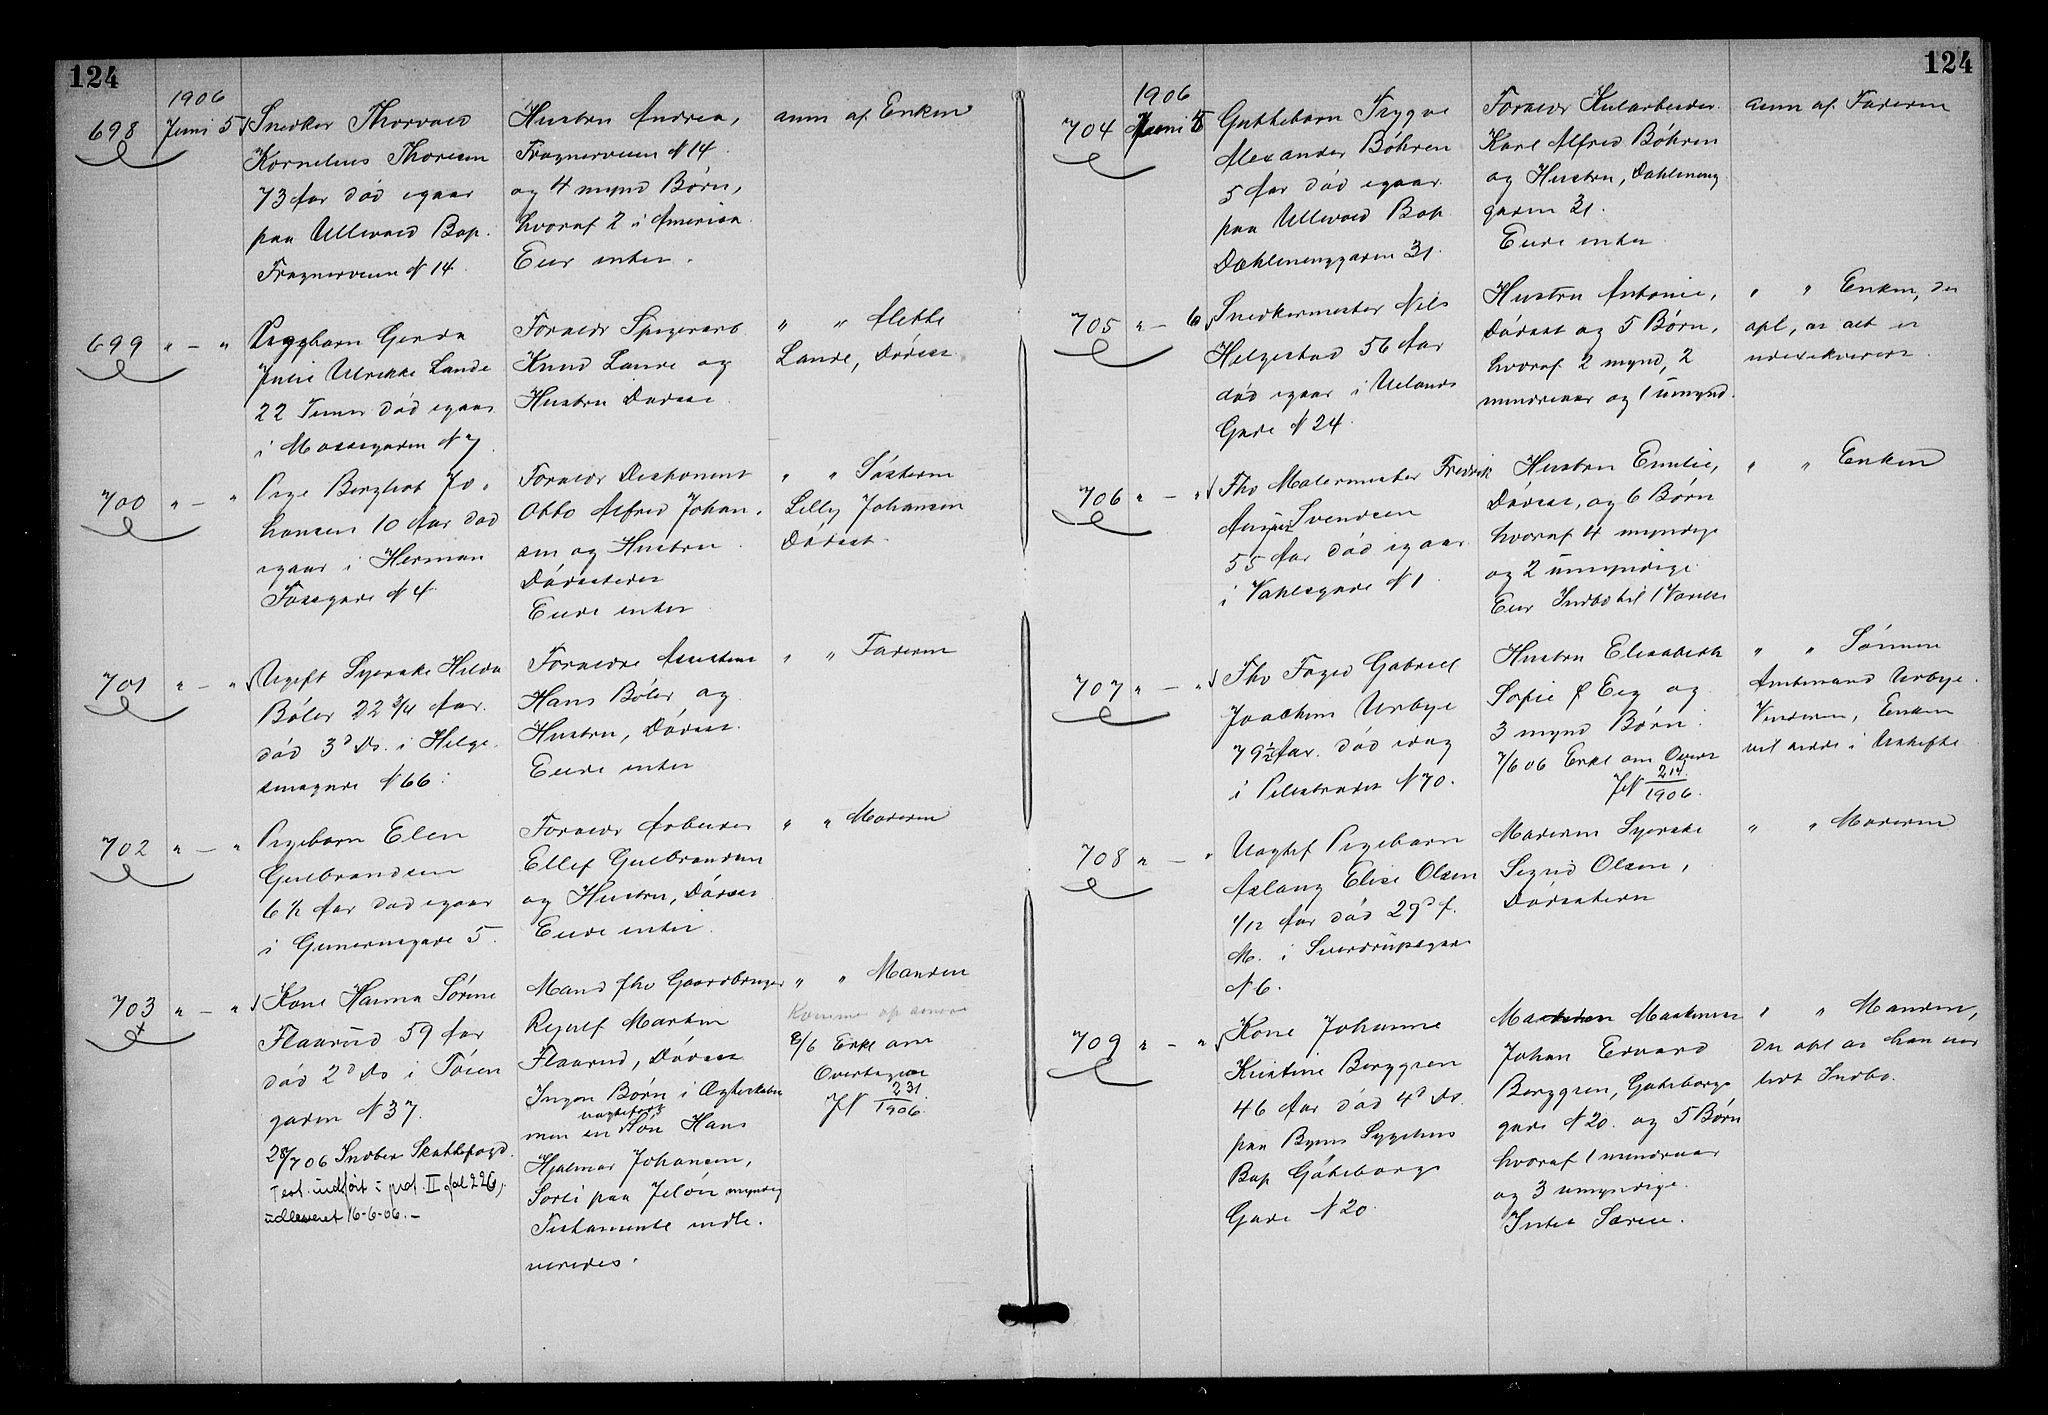 124
1906
698 Juni 5 Snedker Thorvald
Kornelius Thoresen
73 Aar død igaar
paa Ullevaal Bop.
Frognerveien N 14
Hustru Andrea,
Frognerveien N 14
og 4 mynd Børn,
hvoraf 2 i Amerika
Eier intet.
anm af Enken
699 " — " Pigebarn Gerda
Julie Ulrikke Lande
22 Timer død igaar
i Mossegaden N 7
Forældr Spigerarb
Knud Lande og
Hustru Dødsst
" " Mette
Lande, Dødsst
700 " — " Pige Borghot Jo-
hansen 10 Aar død
igaar i Herman
Fossgade N 4.
Forældr Diskonent
Otto Alfred Johan-
sen og Hustru
Dødsstedet
Eiede intet
" " Søsteren
Lilly Johansen
Dødsst
701 " — " Ugift Syerske Hilda
Bøler 22 3/4 Aar
død 3d Ds. i Helge-
sensgade N 66
Forældre
Hans Bøler og
Hustru, Dødsst
Eiede intet
" " Faderen
702 " — " Pigebarn Elen
Gulbrandsen
6 1/2 Aar død igaar
i Gruenersgade 5.
Forældr Arbeider
Ellef Gulbrandsen
og Hustru, Dødsst
Eiede intet
" " Moderen
703 " — " Kone Hanna Sørine
Flaarud 59 Aar
død 2d Ds i Tøien
gaden N 37.
28/7 06 Indber Skattefogd.
Test. indført i prot. II fol 226,
udleveret 16-6-06.—
Mand fhv Gaardbruger
Martin
Flaarud, Dødsst
Ingen Børn i Ægteskabet
uægtefødt
men en Søn Hans
Hjalmar Johansen,
paa Jeløen myndig
Testamente indle-
veredes.
" " Manden
Kommer op senere
8/6 Erkl om
Overtagelse
JN 231/1906.
124
1906
704 Juni 5 Guttebarn Trygve
Alexander Bøhren
5 Aar død igaar
paa Ullevaal Bop
Dælenenggaden 31.
Forældr Kularbeider
Karl Alfred Bøhren
og Hustru, Dahleneng
gaden 31.
Eiede intet
anm af Faderen
705 " — 6 Snedkermester Nils
Helgestad 56 Aar
død igaar i Uelands
Gade N 24.
Hustru Antonie,
Dødsst og 5 Børn,
hvoraf 2 mynd, 2
mindreaar og 1 umynd.
" " Enken, der
opl, at alt er
udexekveret.
706 " — " Fhv Malermester Fredrik
August Svendsen
55 Aar død igaar
i Vahlsgade N 1
Hustru Emilie,
Dødsst, og 6 Børn
hvoraf 4 myndige
og 2 umyndige.
Eier Indbo til 1 Værelse
" " Enken
707 " — " Fhv Foged Gabriel
Joachim Urbye
79 1/2 Aar. død idag
i Pilestrædet N 70.
Hustru Elisabeth
Sofie f Eeg og
3 mynd Børn.
7/6 06 Erkl om Overt
JN 214/1906.
" " Sønnen
Amtmand Urbye.
Vinderen, Enken
vil sidde i Uskifte
708 " — " Uægtef Pigebarn
Aslaug Elise Olsen
1/12 Aar død 29d f.
M. i Sverdrupsgade
N 6.
Moderen Syerske
Signe Olsen,
Dødsstedn
" " Moderen
709 " — " Kone Johanne
Kristine Berggren
46 Aar død 4d Ds.
paa Byens Sygehus
Bop Gøteborgs
Gade N 20.
Johan Edvard
Berggren, Gøteborgs
gade N 20. og 5 Børn
hvoraf 1 mindreaar
og 3 umyndige.
Intet Særeie.
" " Manden,
der opl at han eier
lidt Indbo.